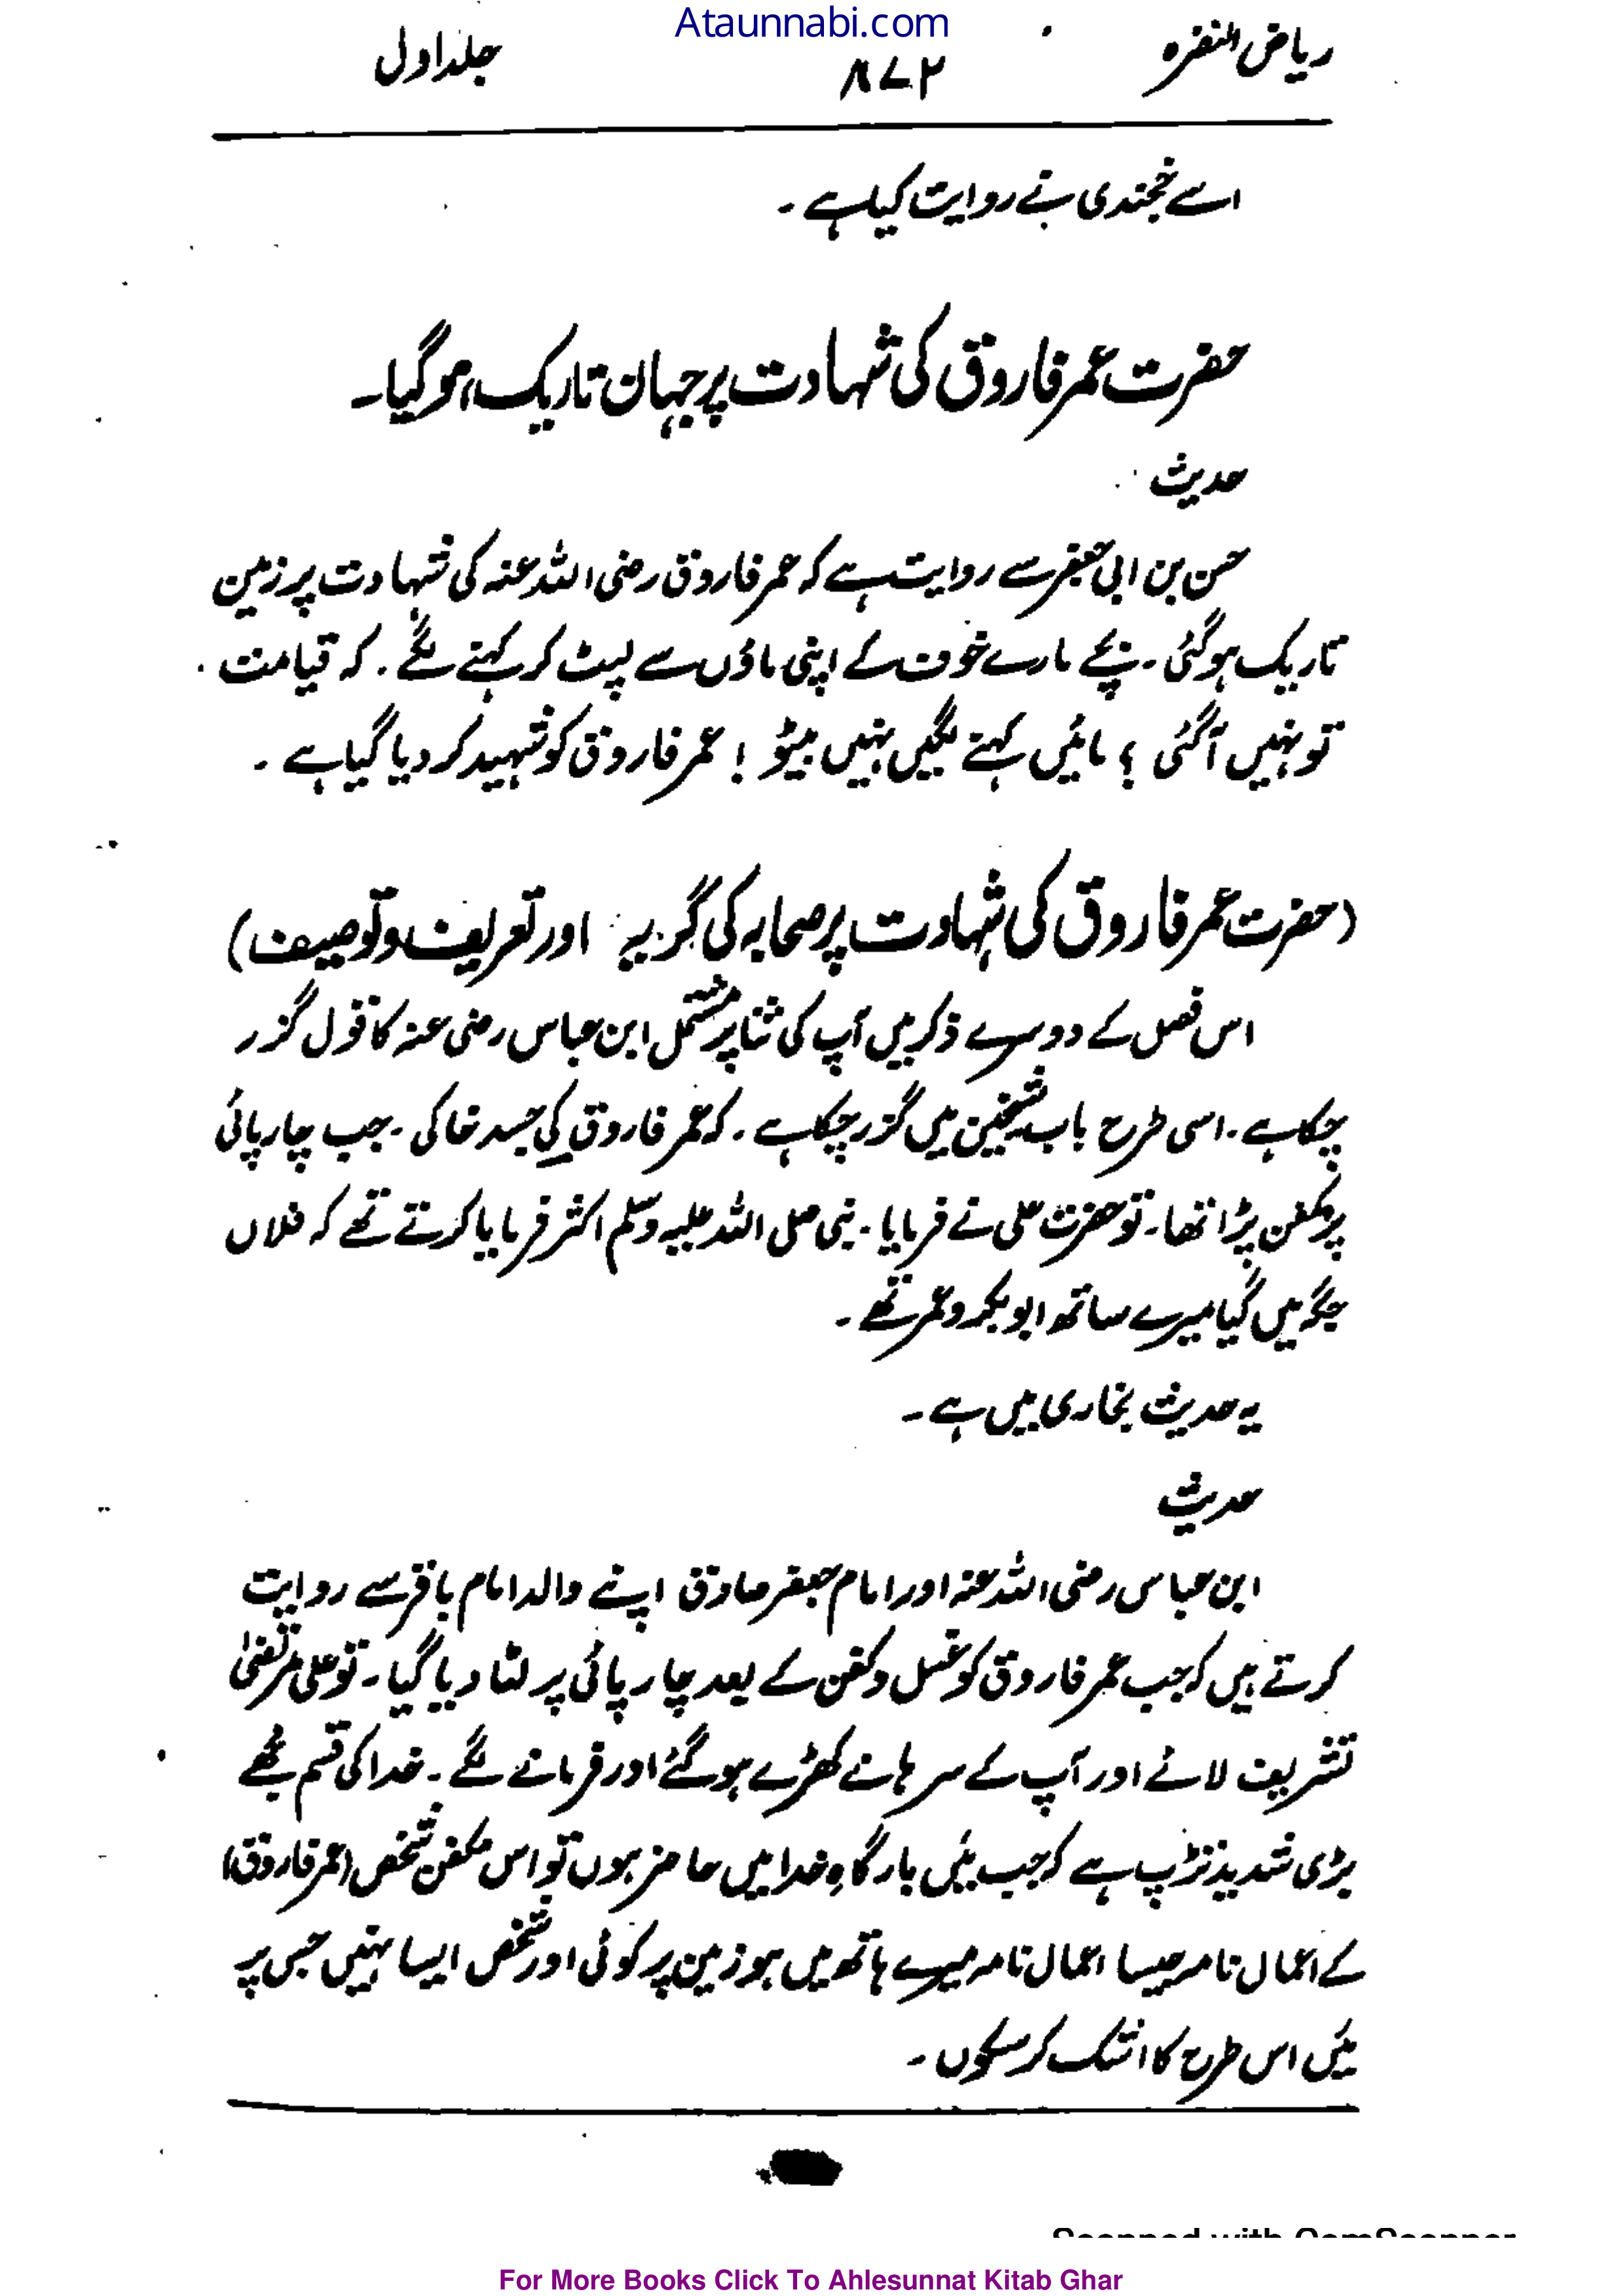 Ataunnabi.com
ریاض النضرہ ۸۷۲ جلد اول
اسے خجندی نے روایت کیا ہے ۔
حضرت عمر فاروق کی شہادت پر جہان تاریک ہو گیا ۔
حدیث
حسن بن ابی جعفر سے روایت ہے کہ عمر فاروق رضی اللہ عنہ کی شہادت پر زمین
تاریک ہو گئی ۔ بچے مارے خوف کے اپنی ماؤں سے لپٹ کر کہنے لگے ۔ کہ قیامت
تو نہیں آ گئی ؟ مائیں کہنے لگیں نہیں بیٹو ! عمر فاروق کو شہید کر دیا گیا ہے ۔
(حضرت عمر فاروق کی شہادت پر صحابہ کی گریہ اور تعریف و توصیف)
اس فصل کے دوسرے ذکر میں آپ کی ثنا پر مشتمل ابن عباس رضی عنہ کا قول گزر
چکا ہے ۔ اسی طرح باب شیخین میں گزر چکا ہے ۔ کہ عمر فاروق کی جسد خاکی ۔ جب چارپائی
پر مکفن پڑا تھا ۔ تو حضرت علی نے فرمایا ۔ نبی صلی اللہ علیہ وسلم اکثر فرمایا کرتے تھے کہ فلاں
جگہ میں گیا میرے ساتھ ابو بکر و عمر تھے ۔
یہ حدیث بخاری میں ہے ۔
حدیث
ابن عباس رضی اللہ عنہ اور امام جعفر صادق اپنے والد امام باقر سے روایت
کرتے ہیں کہ جب عمر فاروق کو غسل و کفن کے بعد چارپائی پر لٹا دیا گیا ۔ تو علی مرتضیٰ
تشریف لائے اور آپ کے سرہانے کھڑے ہو گئے اور فرمانے لگے ۔ خدا کی قسم مجھے
بڑی شدید تڑپ ہے کہ جب میں بارگاہِ خدا میں حاضر ہوں تو اس مکفن شخص (عمر فاروق)
کے اعمال نامہ جیسا اعمال نامہ میرے ہاتھ میں ہو زمین پر کوئی اور شخص ایسا نہیں جس پر
میں اس طرح کا اشک کر سکوں ۔
Scanned with CamScanner
For More Books Click To Ahlesunnat Kitab Ghar